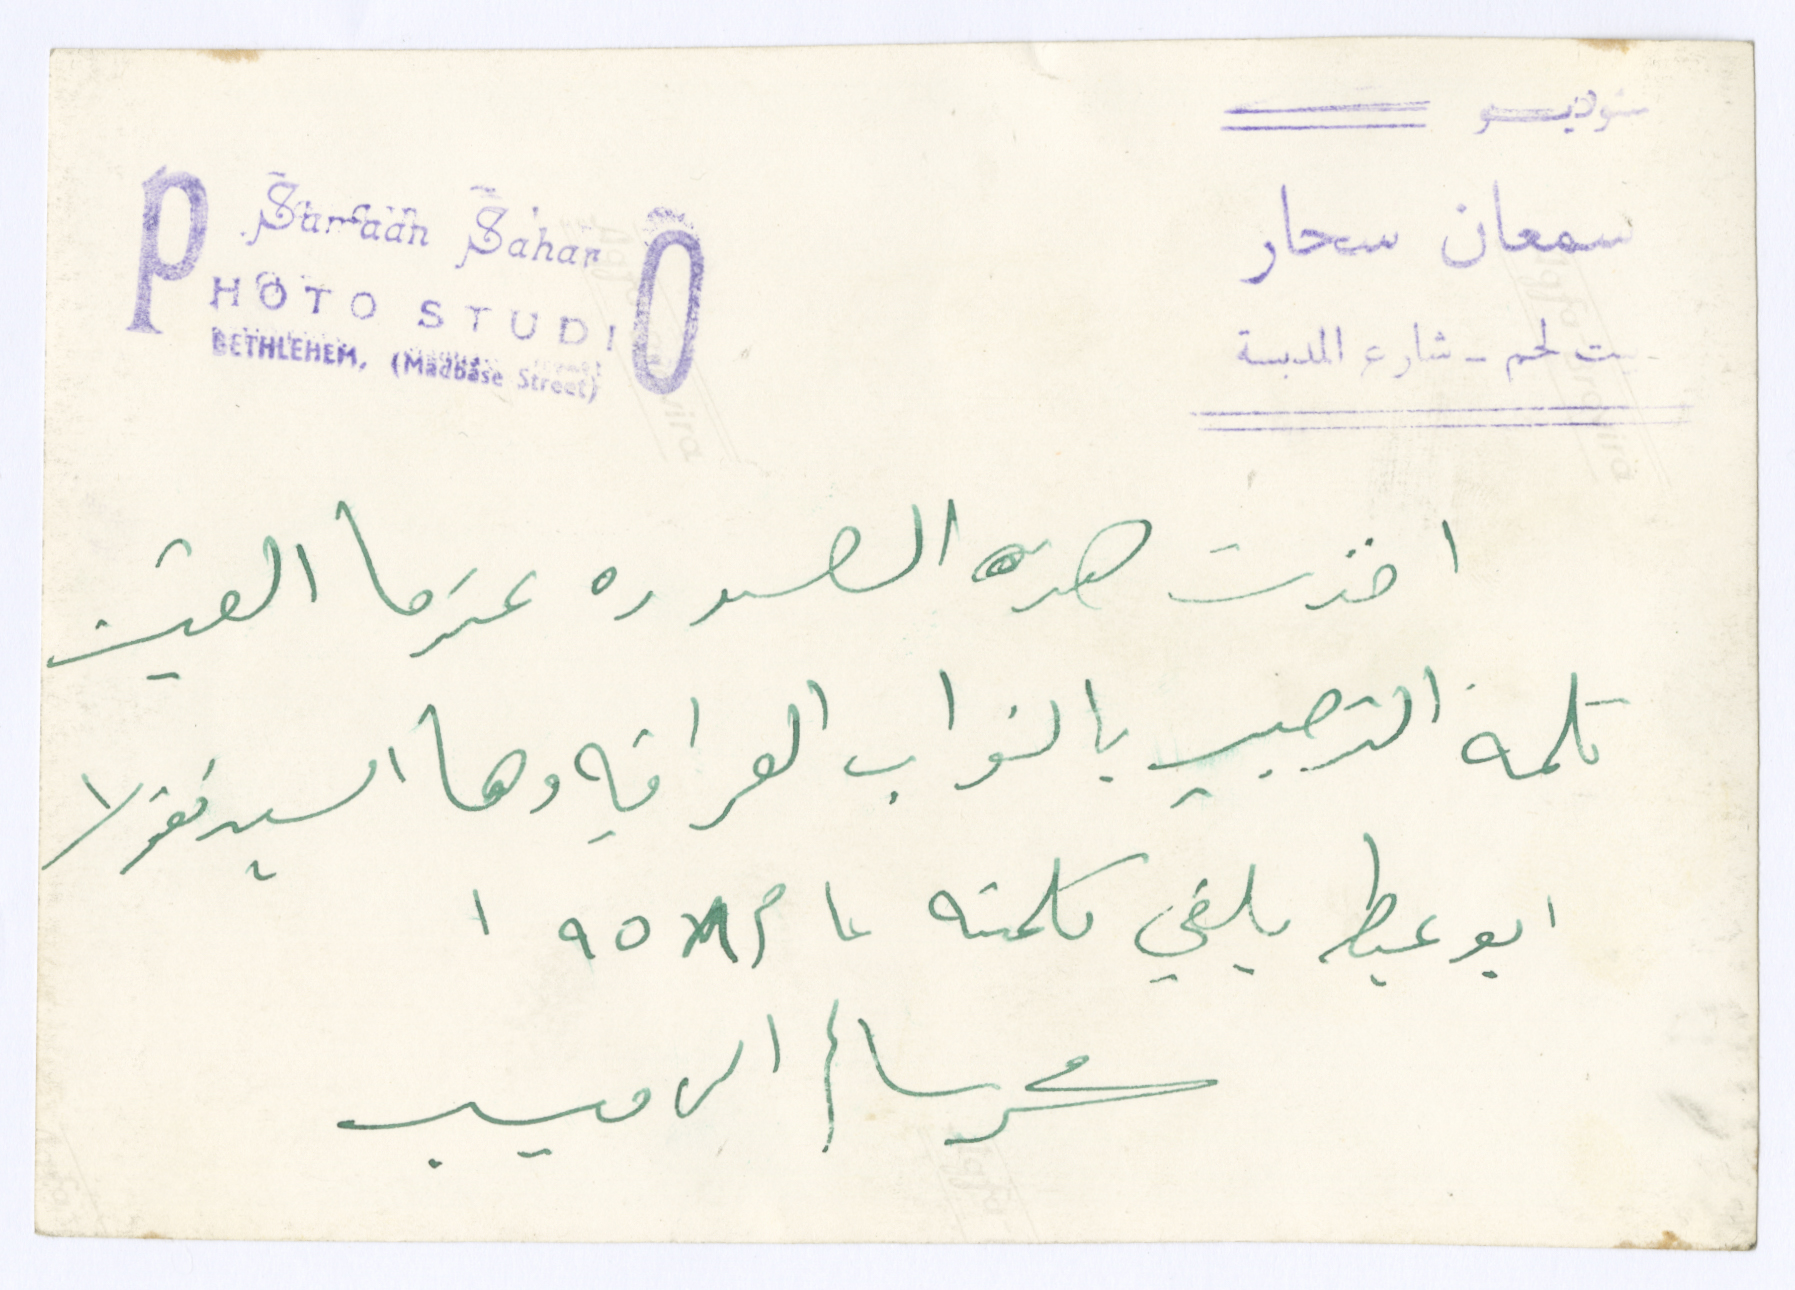 Samaan Sahar
PHOTO STUDIO
BETHLEHEM, (Madbase Street)
ستوديو
سمعان سحار
بيت لحم - شارع المدبسة
اخذت هذه الصوره عندما القيت
كلمة الترحيب بالنواب العراقيه وهنا السيد نقولا
ابو عيطه يلقي كلمته عام ١٩٥٨